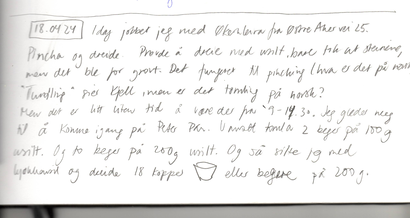 18.04.24 I dag jobbet jeg med fra Østre Aker vei 25.
Pincha og dreide. Prøvde å dreie med urilt. bare tok ut steinene,
men det ble for grovt. Det funger til pinching (hva er det på norsk
"Tumling" sier Kjell men er det på norsk?
Men det er litt liten tid å være der fra 9-14.30. Jeg gleder meg
til å komme igang på Peter Pan. 2 beger på 100 g
urilt. Og to beger på 200g urilt. Og så jeg med
og dreide 18 kopper eller begere på 200 g.